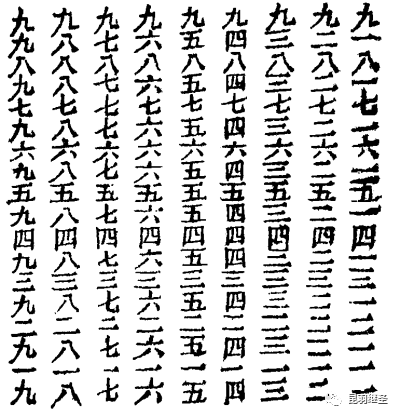 九一八一七一六一五一四一三一二一一一
九二八二七二六二五二四二三二二二一二
九三八三七三六三五三四三三三二三一三
九四八四七四六四五四四四三四二四一四
九五八五七五六五五五四五三五二五一五
九六八六七六六六五六四六三六二六一六
九七八七七七六七五七四七三七二七一七
九八八八七八六八五八四八三八二八一八
九九八九七九六九五九四九三九二九一九
昆羽继圣